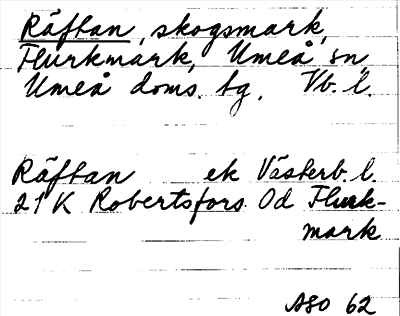 Räftan, skogsmark,
Flurkmark, Umeå sn
Umeå doms. tg. Vb. l.
Räftan ek Västerb. l.
21 K Robertsfors Od Flurk-
mark
ASO 62